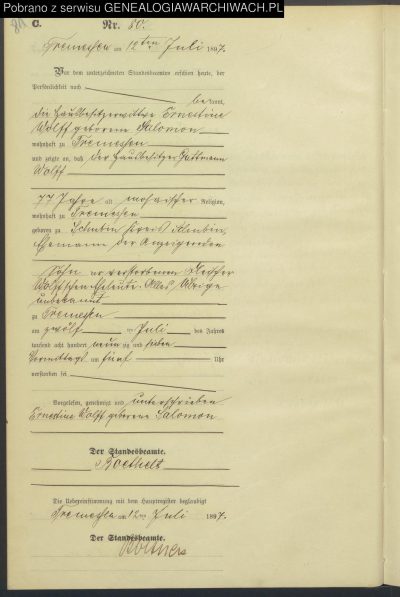 Pobrano z serwisu GENEALOGIAWARCHIWACH.PL
C.
Nr. 80.
Tremessen am 12ten Juli 1897.
Vor dem unterzeichneten Standesbeamten erschien heute, der
Persönlichkeit nach
bekannt,
die Hausbesitzerwittwe Ernestine
Wolff geborene Salomon
wohnhaft zu Tremessen
und zeigte an, daß der Hausbesitzer
Wolff
77 Jahre alt mosaischer Religion,
wohnhaft zu Tremessen
geboren zu Schubin Kreis Schubin,
Ehemann der Anzeigenden
Sohn verstorbenen
Wolffschen Eheleute. Alles Übrige
unbekannt
zu Tremessen
am zwölf ten Juli des Jahres
tausend acht hundert neunzig und sieben
Vormittags um fünf Uhr
verstorben sei
Vorgelesen, genehmigt und unterschrieben
Ernestine Wolff geborene Salomon
Der Standesbeamte.
Die Uebereinstimmung mit dem Hauptregister beglaubigt
Tremessen am 12ten Juli 1897.
Der Standesbeamte.